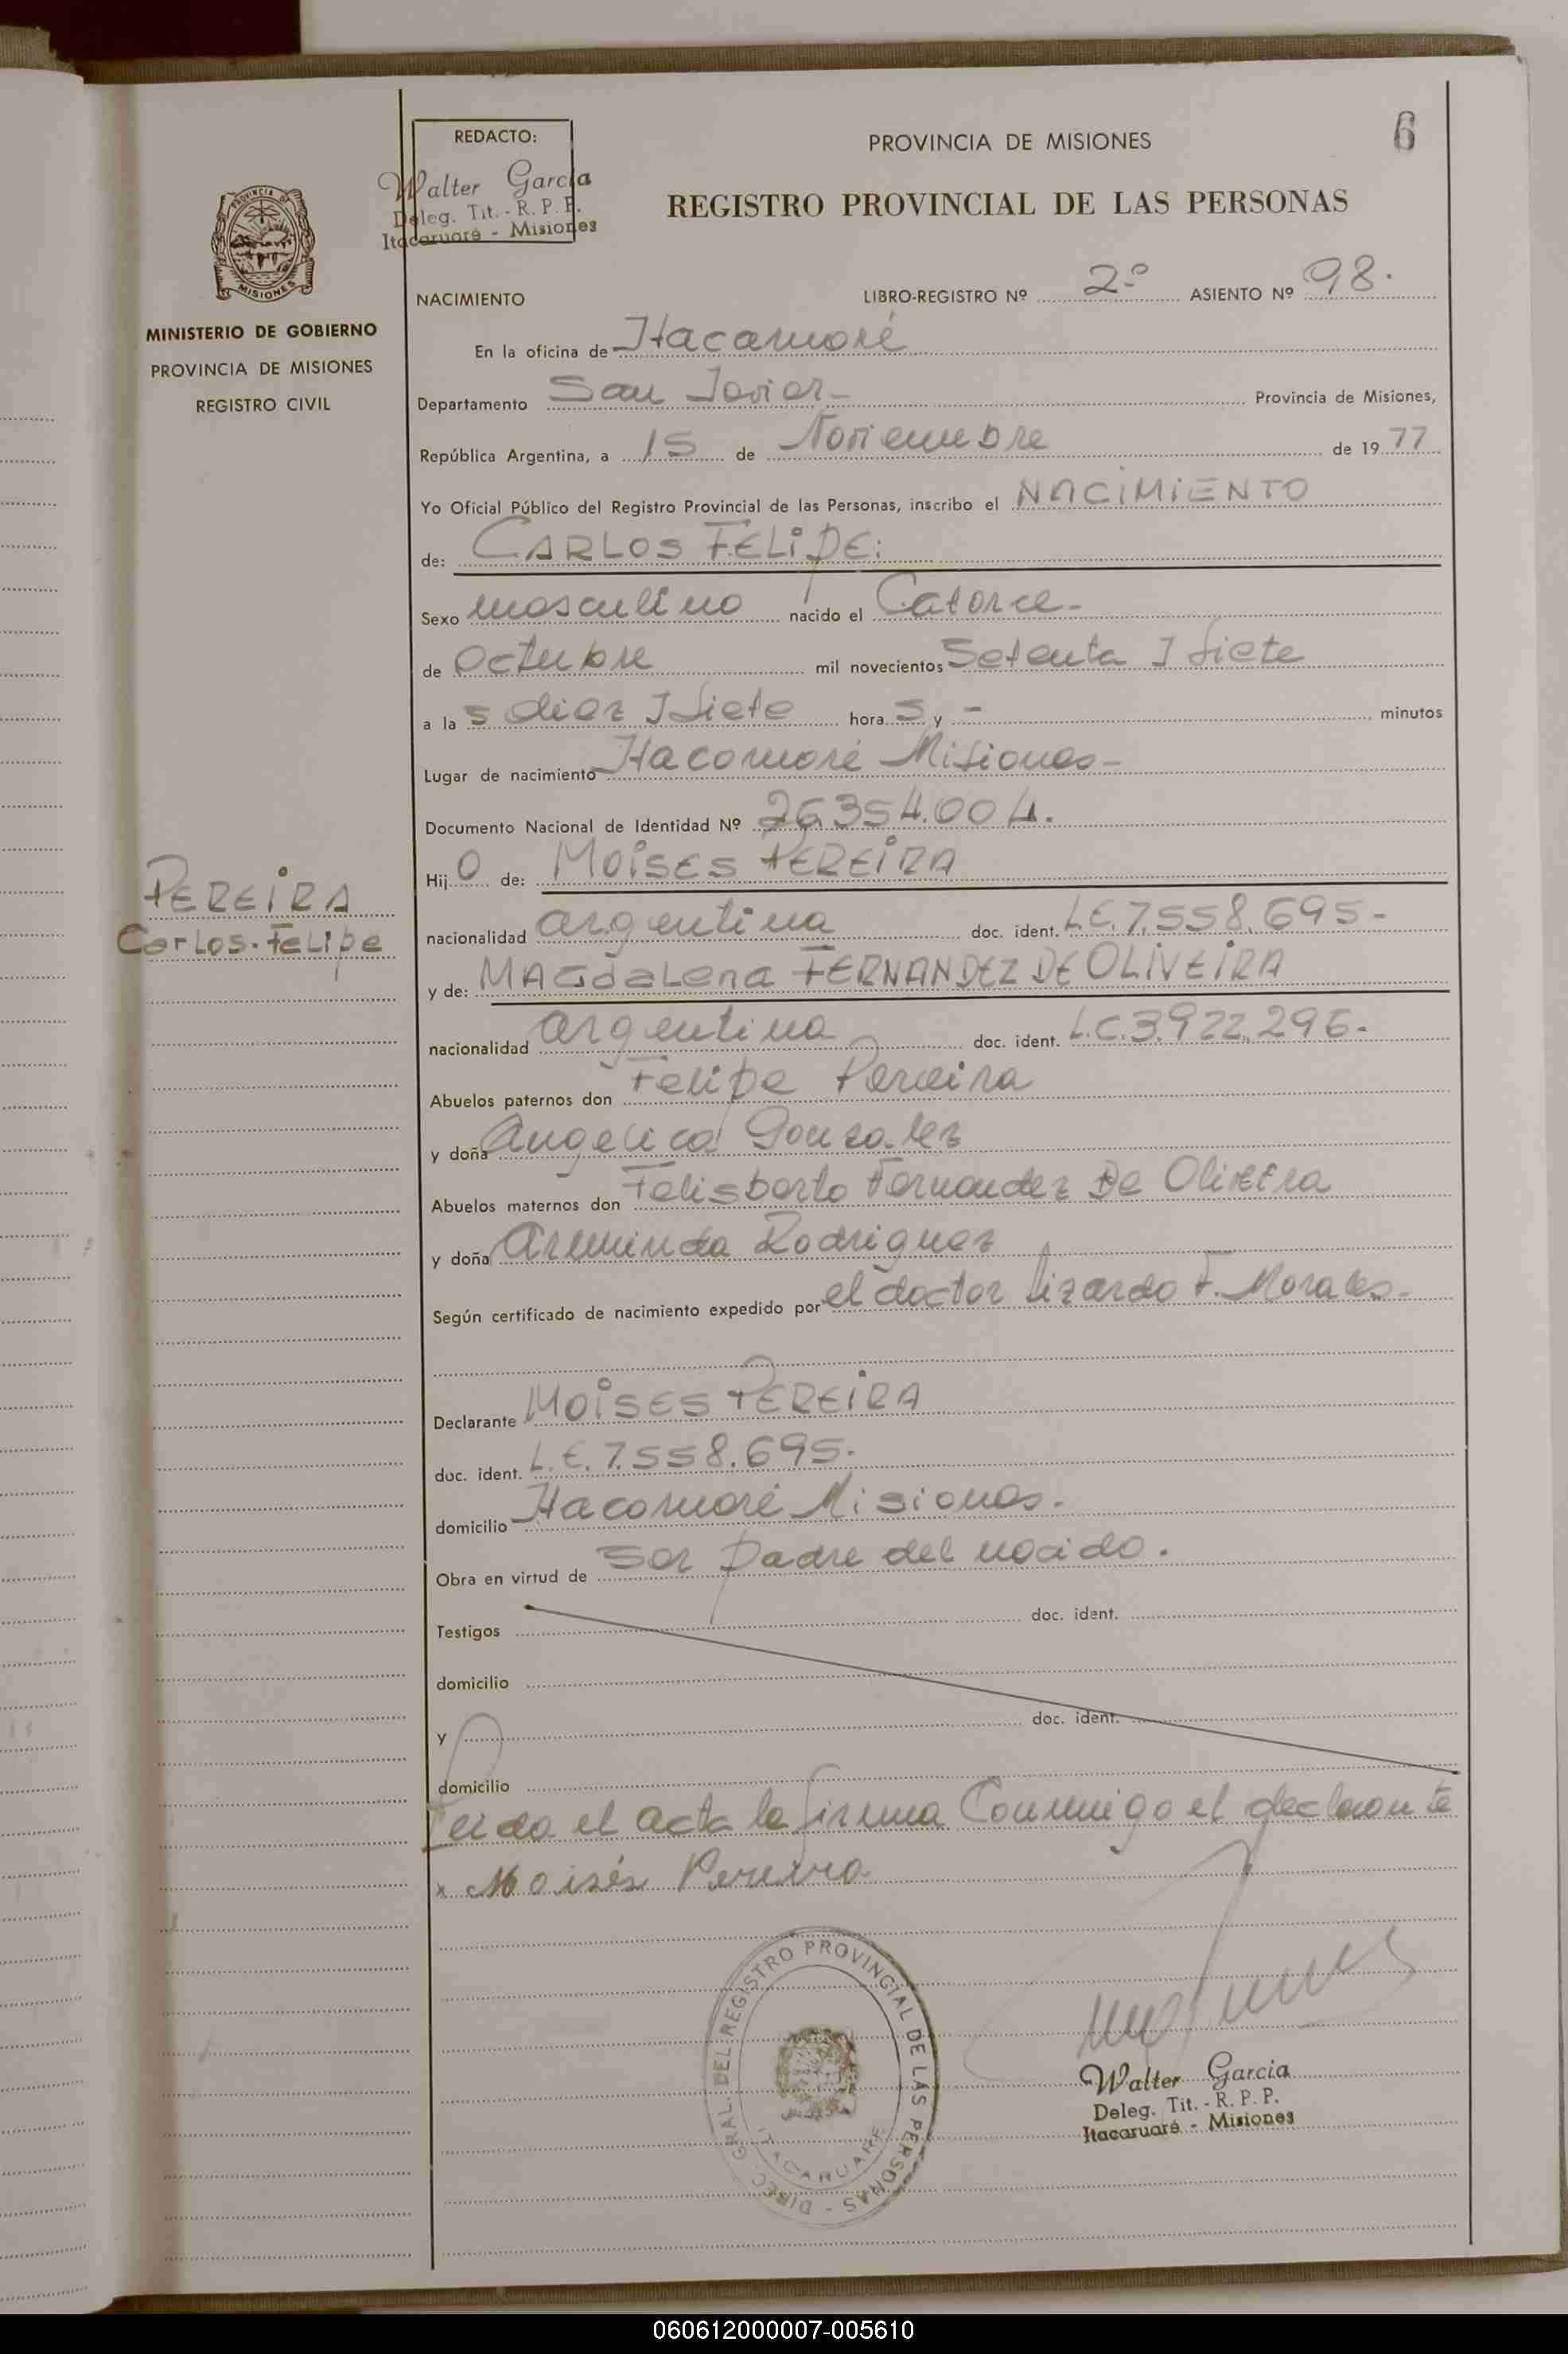 6
REDACTO:
Walter García
Deleg. Tit. - R. P. P.
Itacaruaré - Misiones
PROVINCIA DE MISIONES
REGISTRO PROVINCIAL DE LAS PERSONAS
PROVINCIA DE
MISIONES
MINISTERIO DE GOBIERNO
PROVINCIA DE MISIONES
REGISTRO CIVIL
NACIMIENTO LIBRO-REGISTRO Nº 2º ASIENTO Nº 98.
En la oficina de Itacaruaré
Departamento San Javier - Provincia de Misiones,
República Argentina, a 15 de Noviembre de 1977
Yo Oficial Público del Registro Provincial de las Personas, inscribo el NACIMIENTO
de: CARLOS FELIPE:
Sexo masculino nacido el Catorce -
de Octubre mil novecientos Setenta I Siete
a la s diez I Siete hora s y - minutos
Lugar de nacimiento Itacaruaré Misiones -
Documento Nacional de Identidad Nº 26.354.004.
Hij o de: MOISES PEREIRA
PEREIRA
Carlos. Felipe
nacionalidad argentina doc. ident. L.E. 7.558.695 -
y de: MAGdaLena FERNANDEZ DE OLIVEIRA
nacionalidad argentina doc. ident. L.C. 3.922.296 -
Abuelos paternos don Felipe Pereira
y doña Angelica Gonzalez
Abuelos maternos don Felisberto Fernandez De Oliveira
y doña Arminda Rodriguez
Según certificado de nacimiento expedido por el doctor Lizardo F. Morales -
Declarante MOISES PEREIRA
doc. ident. L.E. 7.558.695.
domicilio Itacaruaré Misiones.
Obra en virtud de ser padre del nacido.
Testigos doc. ident.
domicilio
y doc. ident.
domicilio
Leida el acta la firma Conmigo el declarante
x Moisés Pereira
DIREC. GRAL. DEL REGISTRO PROVINCIAL DE LAS PERSONAS -
ITACARUARE
Walter García
Deleg. Tit. - R. P. P.
Itacaruaré - Misiones
060612000007-005610